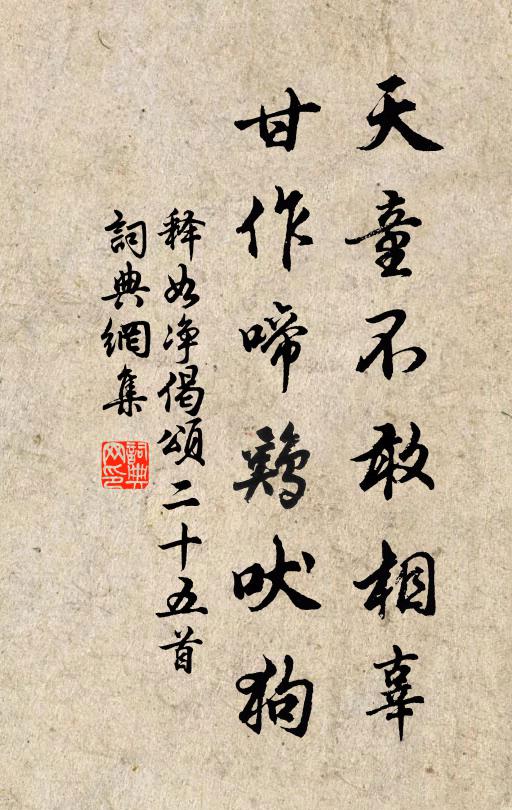 天童不敢相辜
甘作啼鷄吠狗
释如净偈頌二十五首
詞典網集
詞典网印